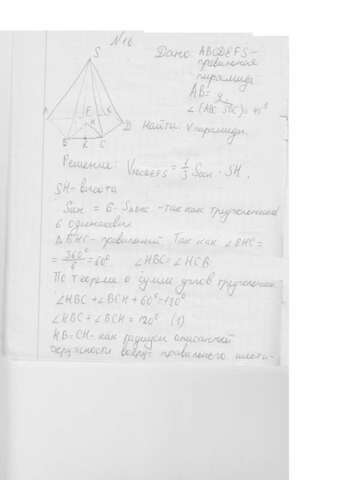 N16
S
Дано: ABCDEFS -
правильная
пирамида
AB = a
∠(ABC SDC) = 45°
Найти: V пирамиды.
E
K
H
D
B
R
C
Решение: V = 1/3 Sосн · SH,
SH - высота
Sосн = 6 · - так как треугольников
6 одинаковых
△BHC - правильный. Так как ∠BHC =
= 360°/6 = 60° ∠HBC = ∠HCB
По теореме о сумме углов треугольника
∠HBC + ∠BCH + 60° = 180°
∠HBC + ∠BCH = 120° (1)
HB = CH - как радиусы описанной
окружности вокруг правильного шести-